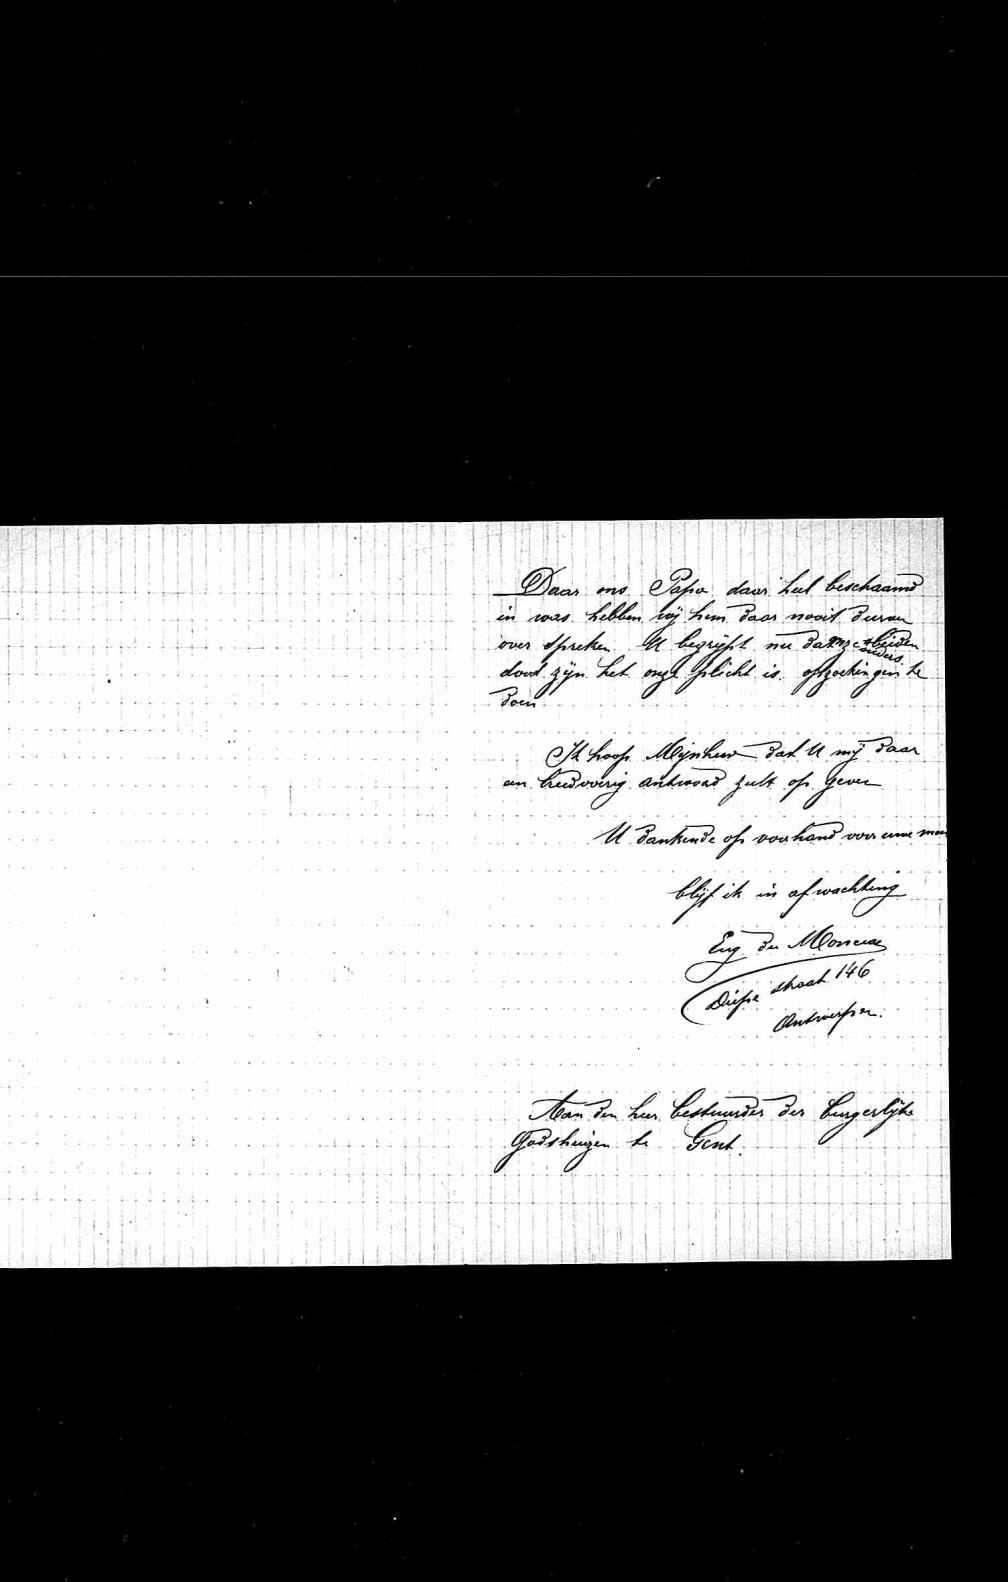 Daar ons Papa daar heel beschaamd
in was hebben wij hem daar nooit durven
over spreken. U begrijpt nu dat onze beiden
ouders
dood zijn het onze plicht is opzoekingen te
doen
Ik hoop Mijnheer dat U mij daar
een breedvoerig antwoord zult op geven
U dankende op voorhand voor uwe
blijf ik in afwachting
Eug De
Diepe straat 146
Antwerpen.
Aan den heer bestuurder der burgerlijke
Godshuizen te Gent.